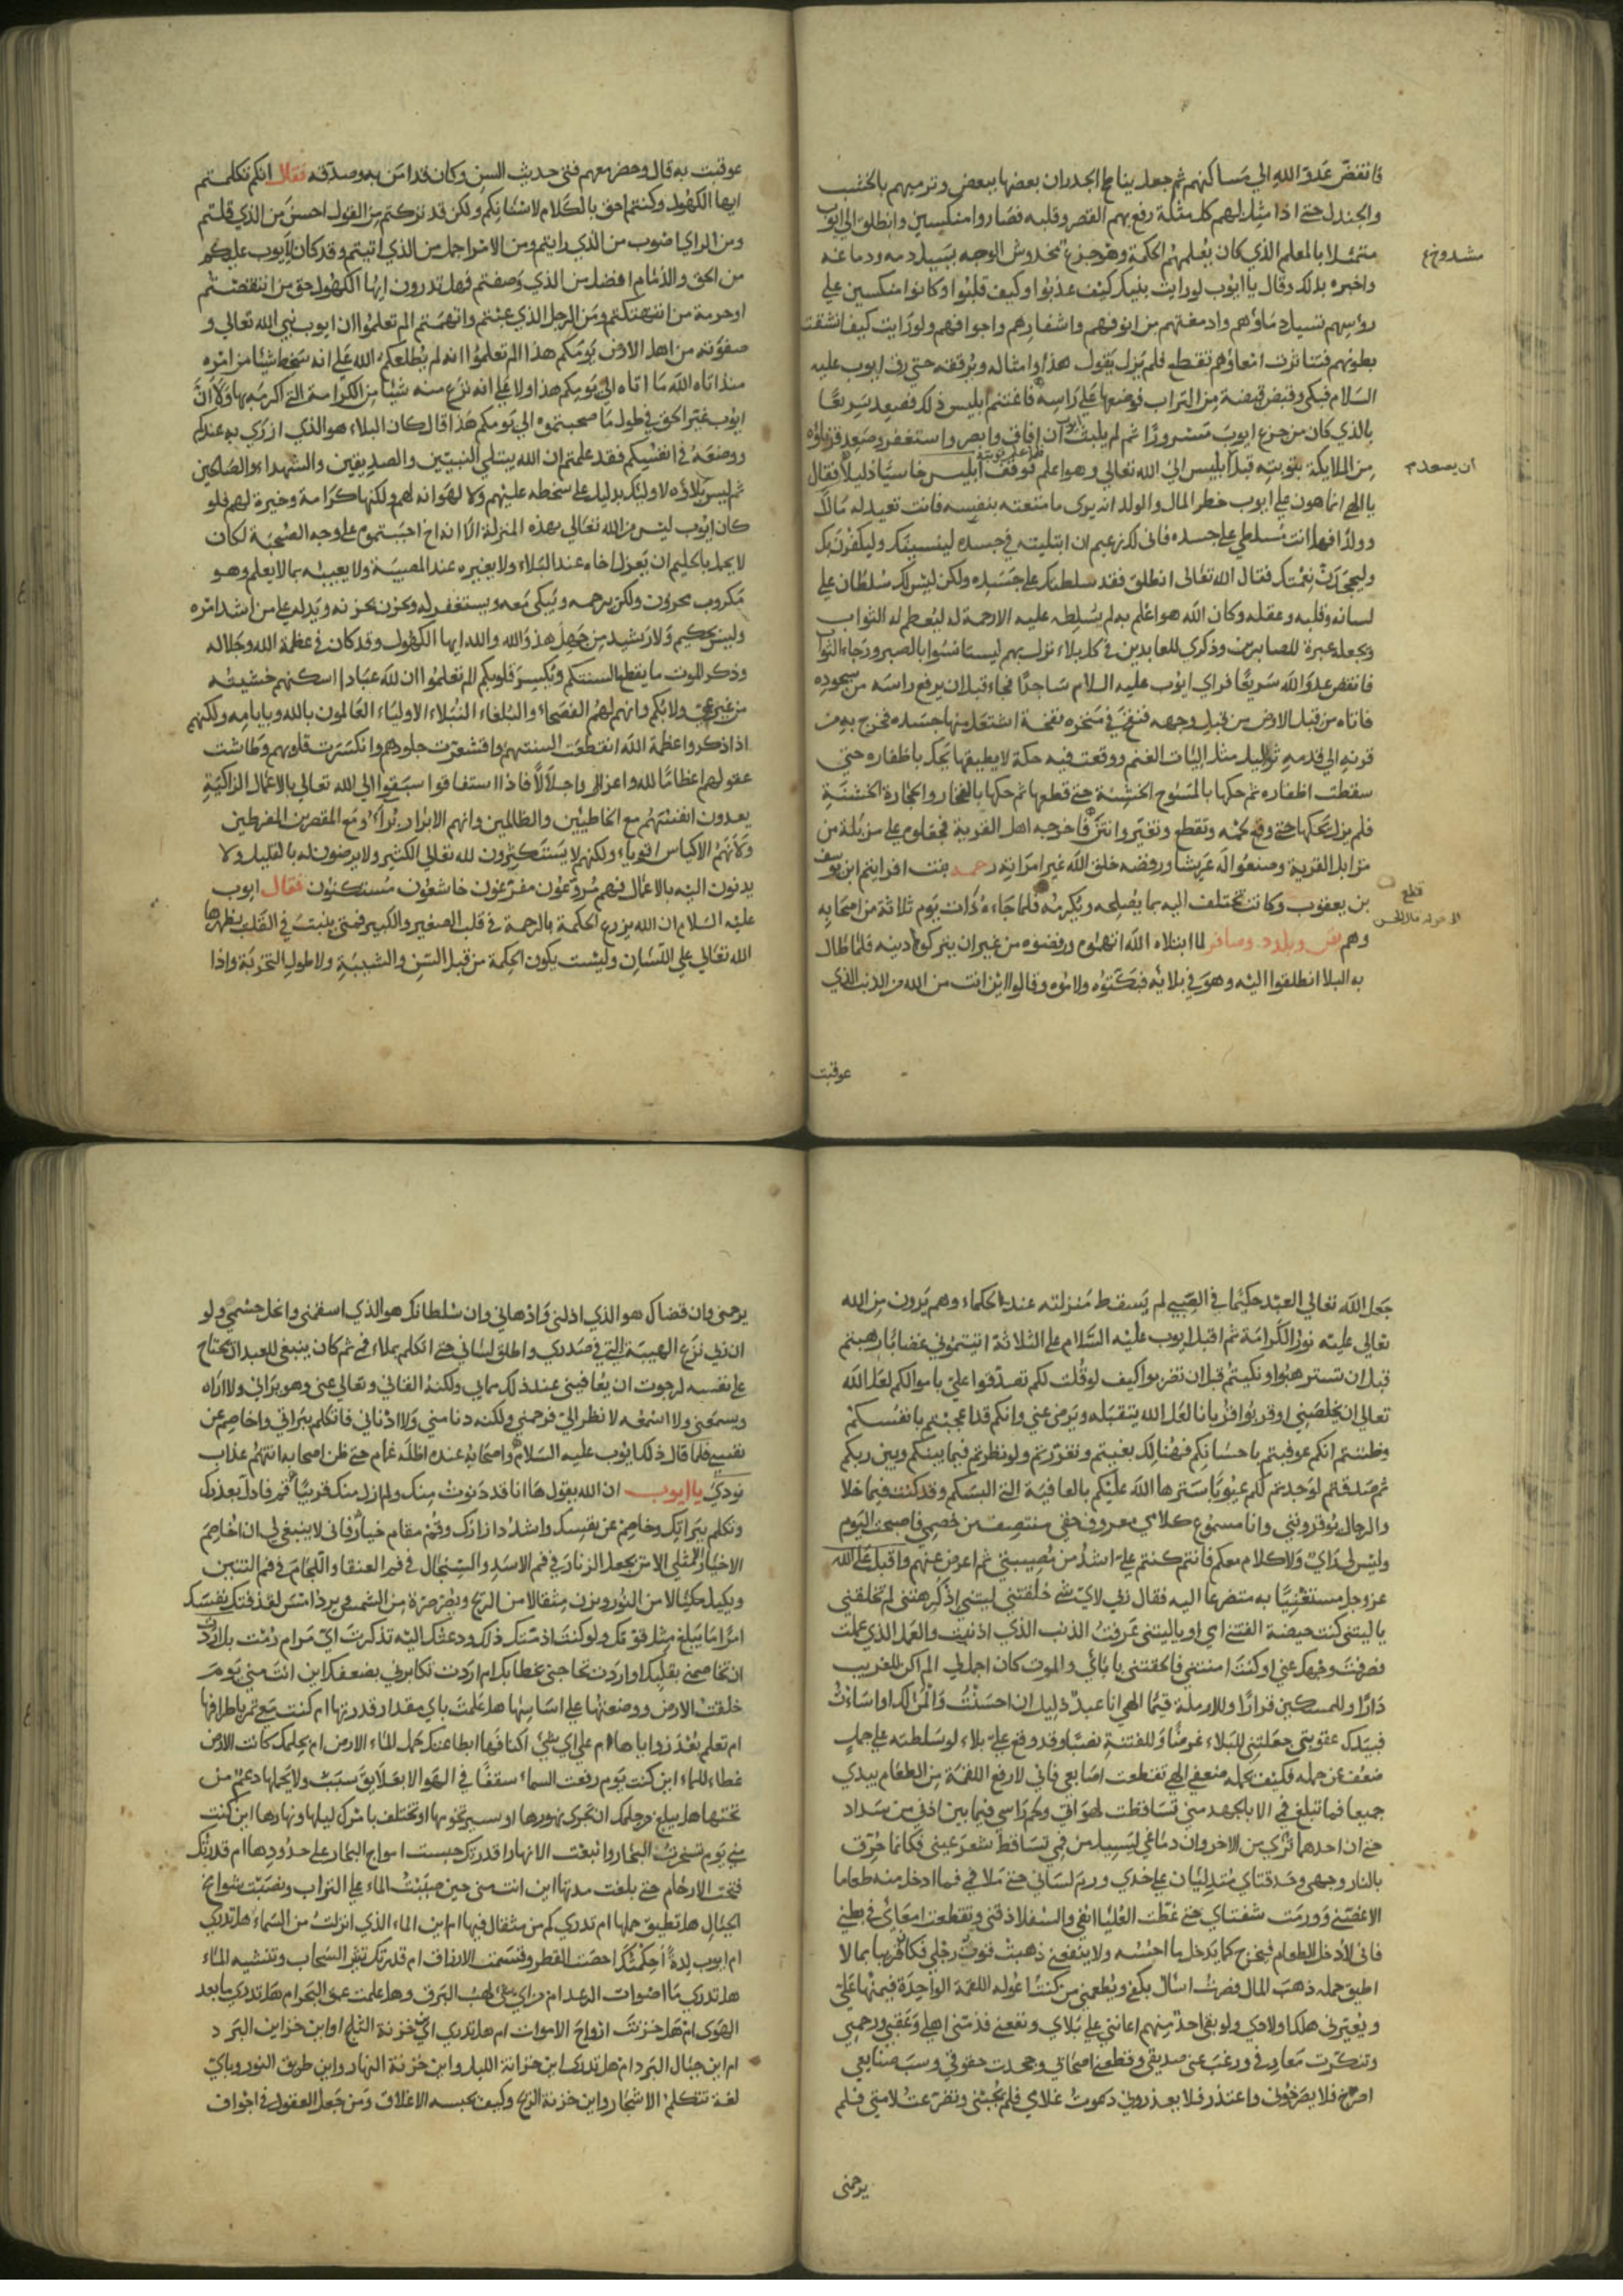 فانقض عدو الله الي مساكنهم ثم جعل يناطح الجدران بعضها ببعض وترميهم بالخشب
والجندل حتى اذا مثل لهم كل مثلة رفع بهم القصر وقلبه فصاروا منكسين وانطلق الى ايوب
متمثلا بالمعلم الذي كان يعلمهم الحكمة وهو جزع مخدوش الوجه يسيل دمه ودماغه
مشدوخ
واخبره بذلك وقال يا ايوب لو رايت بنيك كيف عذبوا وكيف قلبوا وكانوا منكسين علي
رؤسهم تسيل دماؤهم وادمغتهم من انوفهم واشفارهم واجوافهم ولو رايت كيف انشقت
بطونهم فتناثرت امعاؤهم تقطع فلم يزل يقول هذا وامثاله ويرققه حتى رق ايوب عليه
السلام فبكى وقبض قبضة من التراب فوضعها على راسه فاغتنم ابليس ذلك فصعد سريعا
بالذي كان من جزع ايوب مسرورا ثم لم يلبث ايوب ان افاق وابصر واستغفر وصعد قرناؤه
من الملايكة بتوبته قبل ابليس الى الله تعالى وهو اعلم فوقف ابليس خاسيا ذليلا فقال
ان يصعد
يا الهي انما هون على ايوب خطر المال والولد انه يرى ما متعته بنفسه فانت تعيد له مالا
وولدا فهل انت مسلطي على جسده فاني لك زعيم ان ابتليته في جسده لينسينك وليكفرن بك
وليجحدن نعمتك فقال الله تعالى انطلق فقد سلطتك على جسده ولكن ليس لك سلطان علي
لسانه وقلبه وعقله وكان الله هو اعلم به لم يسلطه عليه الا رحمة له ليعظم له الثواب
ويجعله عبرة للصابرين وذكرى للعابدين في كل بلاء نزل بهم ليستانسوا بالصبر ورجاء الثواب
فانقض عدو الله سريعا فراى ايوب عليه السلام ساجدا فجاء قبل ان يرفع راسه من سجوده
فاتاه من قبل الارض من قبل وجهه فنفخ في منخره نفخة اشتعل منها جسده فخرج به من
قرنه الي قدمه ثواليل مثل اليات الغنم ووقعت فيه حكة لا يطيقها فحك باظفاره حتى
سقطت اظفاره ثم حكها بالمسوح الخشنة حتى قطعها ثم حكها بالفخار والحجارة الخشنة
فلم يزل يحكها حتى وقع لحمه وتقطع وتغير وانتن فاخرجه اهل القرية فجعلوه على مزبلة من
مزابل القرية وصنعوا له عريشا ورفضه خلق الله غير امراته رحمة بنت افرايم ابن يوسف
بن يعقوب وكانت تختلف اليه بما يصلحه ويكرمه فلما جاءه ذات يوم ثلاثة من اصحابه
وهم يفن وبلدد وصافر لما ابتلاه الله اتهموه ورفضوه من غير ان يتركوا دينه فلما طال
به البلا انطلقوا اليه وهو في بلائه فبكتوه ولاموه وقالوا اين انت من الله من الذنب الذي
عوقبت
عوقبت به قال وحضر معهم فتى حديث السن وكان قد امن به وصدقه فقال انكم تكلمتم
ايها الكهول وكنتم احق بالكلام لاسنانكم ولكن قد تركتم من القول احسن من الذي قلتم
ومن الراي اصوب من الذي رايتم ومن الامر اجمل من الذي اتيتم وقد كان لايوب عليكم
من الحق والذمام افضل من الذي وصفتم فهل تدرون ايها الكهول حق من انتقصتم
او حرمة من انتهكتم ومن الرجل الذي عبتم واتهمتم الم تعلموا ان ايوب نبي الله تعالى و
صفوته من اهل الارض يومكم هذا الم تعلموا انه لم يطلعكم الله على انه سخط شيئا من امره
منذ اتاه الله ما اتاه الى يومكم هذا ولا على انه نزع منه شيئا من الكرامة التي اكرمه بها ولا ان
ايوب غير الحق في طول ما صحبتموه الى يومكم هذا قال كان البلاء هو الذي ازرى به عندكم
ووضعه في انفسكم فقد علمتم ان الله يبتلي النبيين والصديقين والشهداء والصالحين
ثم ليس بلاؤه لاوليك بدليل على سخطه عليهم ولا لهوانه لهم ولكنها كرامة وخيرة لهم فلو
كان ايوب ليس من الله تعالى بهذه المنزلة الا انه اخ احببتموه على وجه الصحبة لكان
لا يجمل بالحليم ان يعزل اخاه عند البلاء ولا يعيره عند المصيبة ولا يعيبه بما لا يعلم وهو
مكروب محزون ولكن يرحمه ويبكي معه ويستغفر له ويحزن بحزنه ويدله على من ارشد امره
وليس بحكيم ولا رشيد من جهل هذا والله والله ايها الكهول وقد كان في عظمة الله وجلاله
وذكر الموت ما يقطع السنتكم ويكسر قلوبكم الم تعلموا ان لله عبادا اسكتهم خشيته
من غير عي ولا بكم وانهم لهم الفصحاء والبلغاء النبلاء الاولياء العالمون بالله وبايامه ولكنهم
اذا ذكروا عظمة الله انقطعت السنتهم واقشعرت جلودهم وانكسرت قلوبهم وطاشت
عقولهم اعظاما لله واعزازا واجلالا فاذا استفاقوا سبقوا الى الله تعالى بالاعمال الزاكية
يعدون انفسهم مع الخاطئين والظالمين وانهم الابرار برآء ومع المقصرين المفرطين
ولانهم الاكياس اقوياء ولكنهم لا يستكثرون لله تعالى الكثير ولا يرضون له بالقليل ولا
يدنون اليه بالاعمال فهم مروعون مفزعون خاشعون مستكنون فقال ايوب
عليه السلام ان الله يزرع الحكمة بالرحمة في قلب الصغير والكبير فمتى ينبت في القلب يظهرها
الله تعالى على اللسان وليست يكون الحكمة من قبل السن والشيبة ولا طول التجربة واذا
جعل الله تعالى العبد حكيما في الصبى لم يسقط منزلته عند الحكماء وهم يرون من الله
تعالى عليه نور الكرامة ثم اقبل ايوب عليه السلام على الثلاثة اتيتموني غضابا رهبتم
قبل ان تسترهبوا وبكيتم قبل ان تضربوا كيف لو قلت لكم تصدقوا علي باموالكم لعل الله
تعالى ان يخلصني او قربوا قربانا لعل الله يتقبله ويرضى عني وانكم قد اعجبتم بانفسكم
وظننتم انكم عوفيتم باحسانكم فهنالك بغيتم وتعززتم ولو نظرتم فيما بينكم وبين ربكم
ثم صدقتم لوجدتم لكم عيوبا سترها الله عليكم بالعافية التي البسكم وقد كنت فيما خلا
والرجال يوقرونني وانا مسموع كلامي معروف حقي منتصف من خصمي فاصبحت اليوم
وليس لي راي ولا كلام معكم فانتم كنتم علي اشد من مصيبتي ثم اعرض عنهم واقبل على الله
عز وجل مستغيثا به متضرعا اليه فقال رب لاي شى خلقتني ليتني اذ كرهتني لم تخلقني
يا ليتني كنت حيضة القتني امي او يا ليتني عرفت الذنب الذي اذنبت والعمل الذي عملت
فصرفت وجهك عني او كنت امتني فالحقتني بابائي والموت كان اجمل بي الم اكن للغريب
دارا وللمسكين قرارا وللارملة قيما الهي انا عبد ذليل ان احسنت والمن لك او اسأت
فبيدك عقوبتي جعلتني للبلاء غرضا وللفتنة نصبا وقد وقع علي بلاء لو سلطته على جبل
ضعف عن حمله فكيف يحمله ضعفي الهي تقطعت اصابعي فاني لارفع اللقمة من الطعام بيدي
جميعا فما تبلغ فمي الا بالجهد مني تساقطت لهواتي ولحم راسي فيما بين اذني من سداد
حتى ان احدهما ترى من الاخر وان دماغي ليسيل من فمي تساقط شعر عيني فكانما حرق
بالنار وجهي وحدقتاي متدليتان على خدي وورم لساني حتى ملا فمي فما ادخل منه طعاما
الا غصني وورمت شفتاي حتى غطت العليا انفي والسفلا ذقني وتقطعت امعائي في بطني
فاني لادخل الطعام فيخرج كما يدخل ما احسه ولا ينفعني ذهبت قوة رجلي فكانهما قربتا ما لا
اطيق حمله ذهب المال فصرت اسال بكفي ويطعمني من كنت اعوله اللقمة الواحدة فيمنها علي
ويعيرني هلك اولادي ولو بقي احد منهم اعانني على بلاي ونفعني فذمني اهلي وعقني رحمي
وتنكرت معارفي ورغب عني صديقي وقطعني اصحابي وجحدت حقوقي ونسيت صنايعي
اصرخ فلا يصرخوني واعتذر فلا يعذروني دعوت غلامي فلم يجبني وتضرعت لامتي فلم
يرحمني
يرحمني وان قضاك هو الذي اذلني وادهاني وان سلطانك هو الذي اسقمني وانحل جسمي ولو
ان ربي نزع الهيبة التي في صدري واطلق لساني حتى اتكلم بملاء فمي ثم كان ينبغي للعبد ان يحاج
على نفسه لرجوت ان يعافيني عند ذلك مما بي ولكنه القاني وتعالى عني وهو يراني ولا اراه
ويسمعني ولا اسمعه لا نظر الي فرحمني ولكنه دنا مني ولا ادناني فاتكلم ببرآتي واخاصم عن
نفسي فلما قال ذلك ايوب عليه السلام واصحابه عنده اظله غمام حتى ظن اصحابه انه عذاب
نودي يا ايوب ان الله يقول ها انا قد دنوت منك ولم ازل منك قريبا قم فادل بعذرك
وتكلم ببراتك وخاصم عن نفسك واشدد ازارك وقم مقام جبار فاني لا ينبغي لي ان اخاصم
الاخيار مثلي الا من يجعل الزناد في فم الاسد والسخال في فم العنقا واللجام في فم التنين
ويكيل مكيالا من النور ويزن مثقالا من الريح ويصر صرة من الشمس ويرد امس لقد منتك نفسك
امرا ما يبلغ مثل قوتك ولو كنت اذ منتك ذلك ودعتك اليه تذكرت اي مرام رمت بك اردت
ان تخاصمني بقلبك او اردت تحاجني بخطابك ام اردت تكابرني بضعفك اين انت مني يوم
خلقت الارض ووضعتها على اساسها هل علمت باي مقدار قدرتها ام كنت معي تمر باطرافها
ام تعلم بعد زواياها ام على اي شئ اكنافها ابطاعتك حمل الماء الارض ام بحكمك كانت الارض
غطاء للماء اين كنت يوم رفعت السماء سقفا في الهوا لا بعلايق سبب ولا يحملها دعم من
تحتها هل يبلغ من حكمك ان تجري نورها او تسير نجومها او تختلف بامرك ليلها ونهارها اين كنت
مني يوم سخرت البحار وانبعت الانهار اقدرتك حبست امواج البحار على حدودها ام قدرتك
فتحت الارحام حتى بلغت مدتها اين انت مني حين صببت الماء على التراب ونصبت شوامخ
الجبال هل تطيق حملها ام تدري كم من مثقال فيها ام اين الماء الذي انزلت من السماء هل تدري
ام ايوب لده احكمتك احصت القطر وقسمت الارزاق ام قدرتك تثير السحاب وتنشيه الماء
هل تدري ما اصوات الرعد ام من اي شى لهب البرق وهل علمت عمق البحر ام هل تدري ما بعد
الهوى ام هل خزنت ارواح الاموات ام هل تدري اين خزنة الثلج او اين خزاين البرد
ام اين جبال البرد ام هل تدري اين خزانة الليل واين خزنة النهار واين طريق النور وباي
لغة تتكلم الاشجار واين خزنة الريح وكيف تحبسه الاغلاق ومن جعل العقول في اجواف